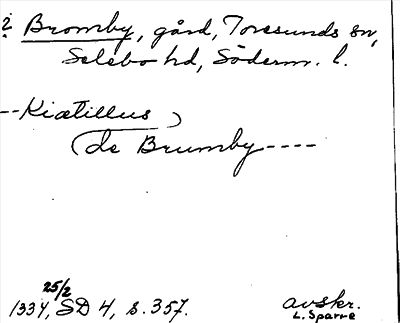 i Bromby, gård, Toresunds sn,
Selebo hd, Söderm. l.
--Kiætillus
de Brumby----
25/2
1334, SD 4, s. 357.
avskr.
L. Sparre